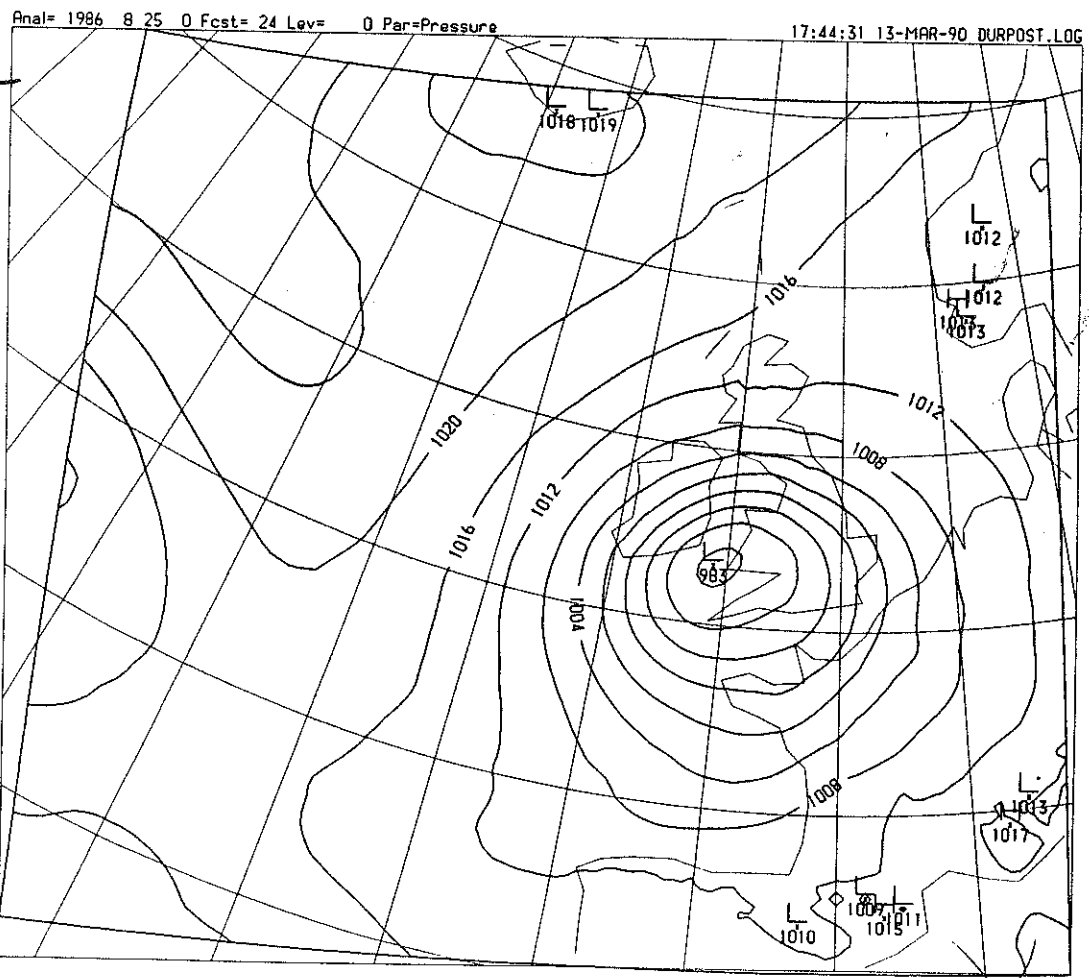 Anal= 1986 8 25 0 Fcst= 24 Lev= 0 Par=Pressure
17:44:31 13-MAR-90 DURPOST.LOG
L L
1018 1019
L
1012
1016
L
1012
H
1013
1012
1020
1008
1012
1016
L
983
1004
1008
L
1013
1017
L
1009
L
1011
1015
L
1010